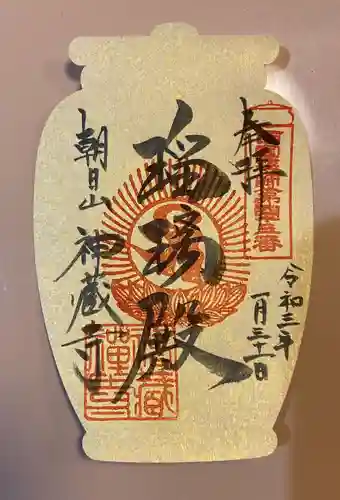 奉拝
令和三年
一月三十一日
瑠璃殿
朝日山 神蔵寺
神蔵
禅寺